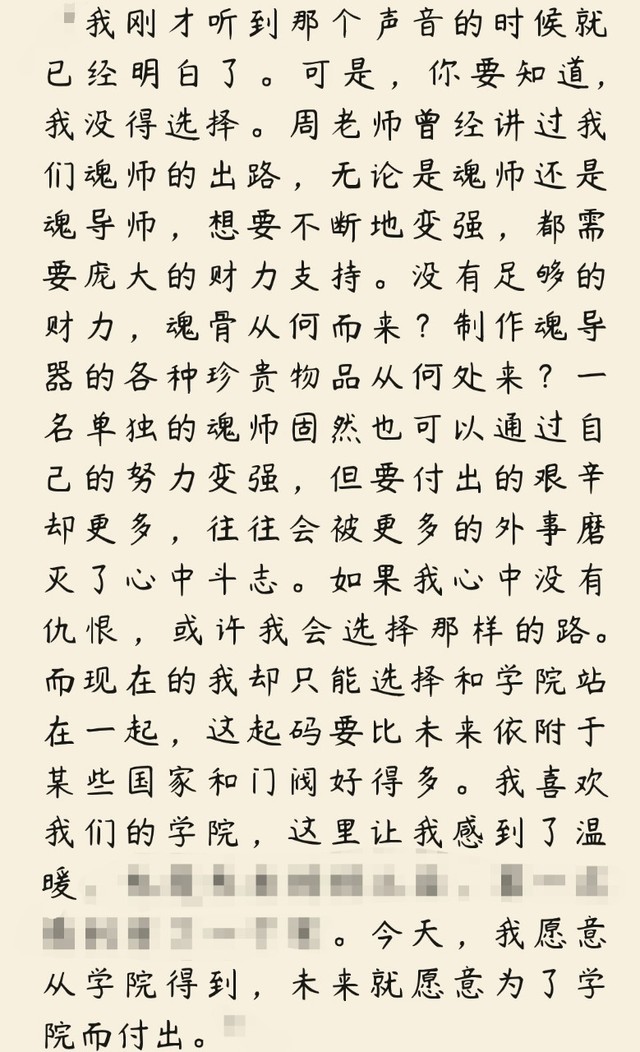 我刚才听到那个声音的时候就
已经明白了。可是，你要知道，
我没得选择。周老师曾经讲过我
们魂师的出路，无论是魂师还是
魂导师，想要不断地变强，都需
要庞大的财力支持。没有足够的
财力，魂骨从何而来？制作魂导
器的各种珍贵物品从何处来？一
名单独的魂师固然也可以通过自
己的努力变强，但要付出的艰辛
却更多，往往会被更多的外事磨
灭了心中斗志。如果我心中没有
仇恨，或许我会选择那样的路。
而现在的我却只能选择和学院站
在一起，这起码要比未来依附于
某些国家和门阀好得多。我喜欢
我们的学院，这里让我感到了温
暖
。今天，我愿意
从学院得到，未来就愿意为了学
院而付出。